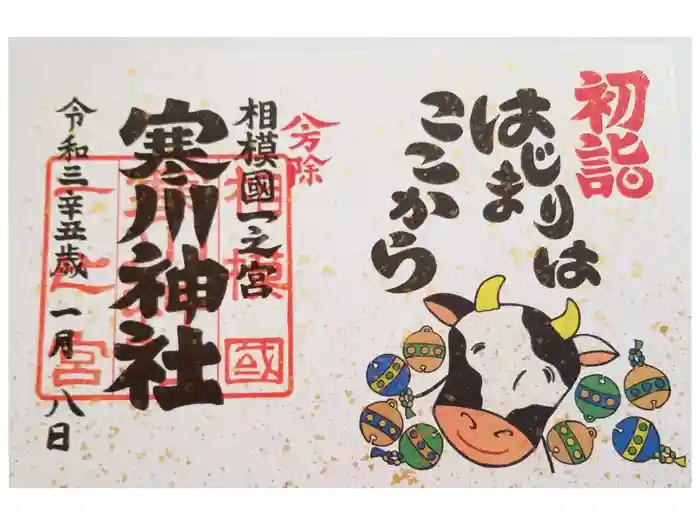 初詣
はじまりは
ここから
八方除
相模國一之宮
寒川神社
令和三辛丑歳 一月八日
相模國
一之宮